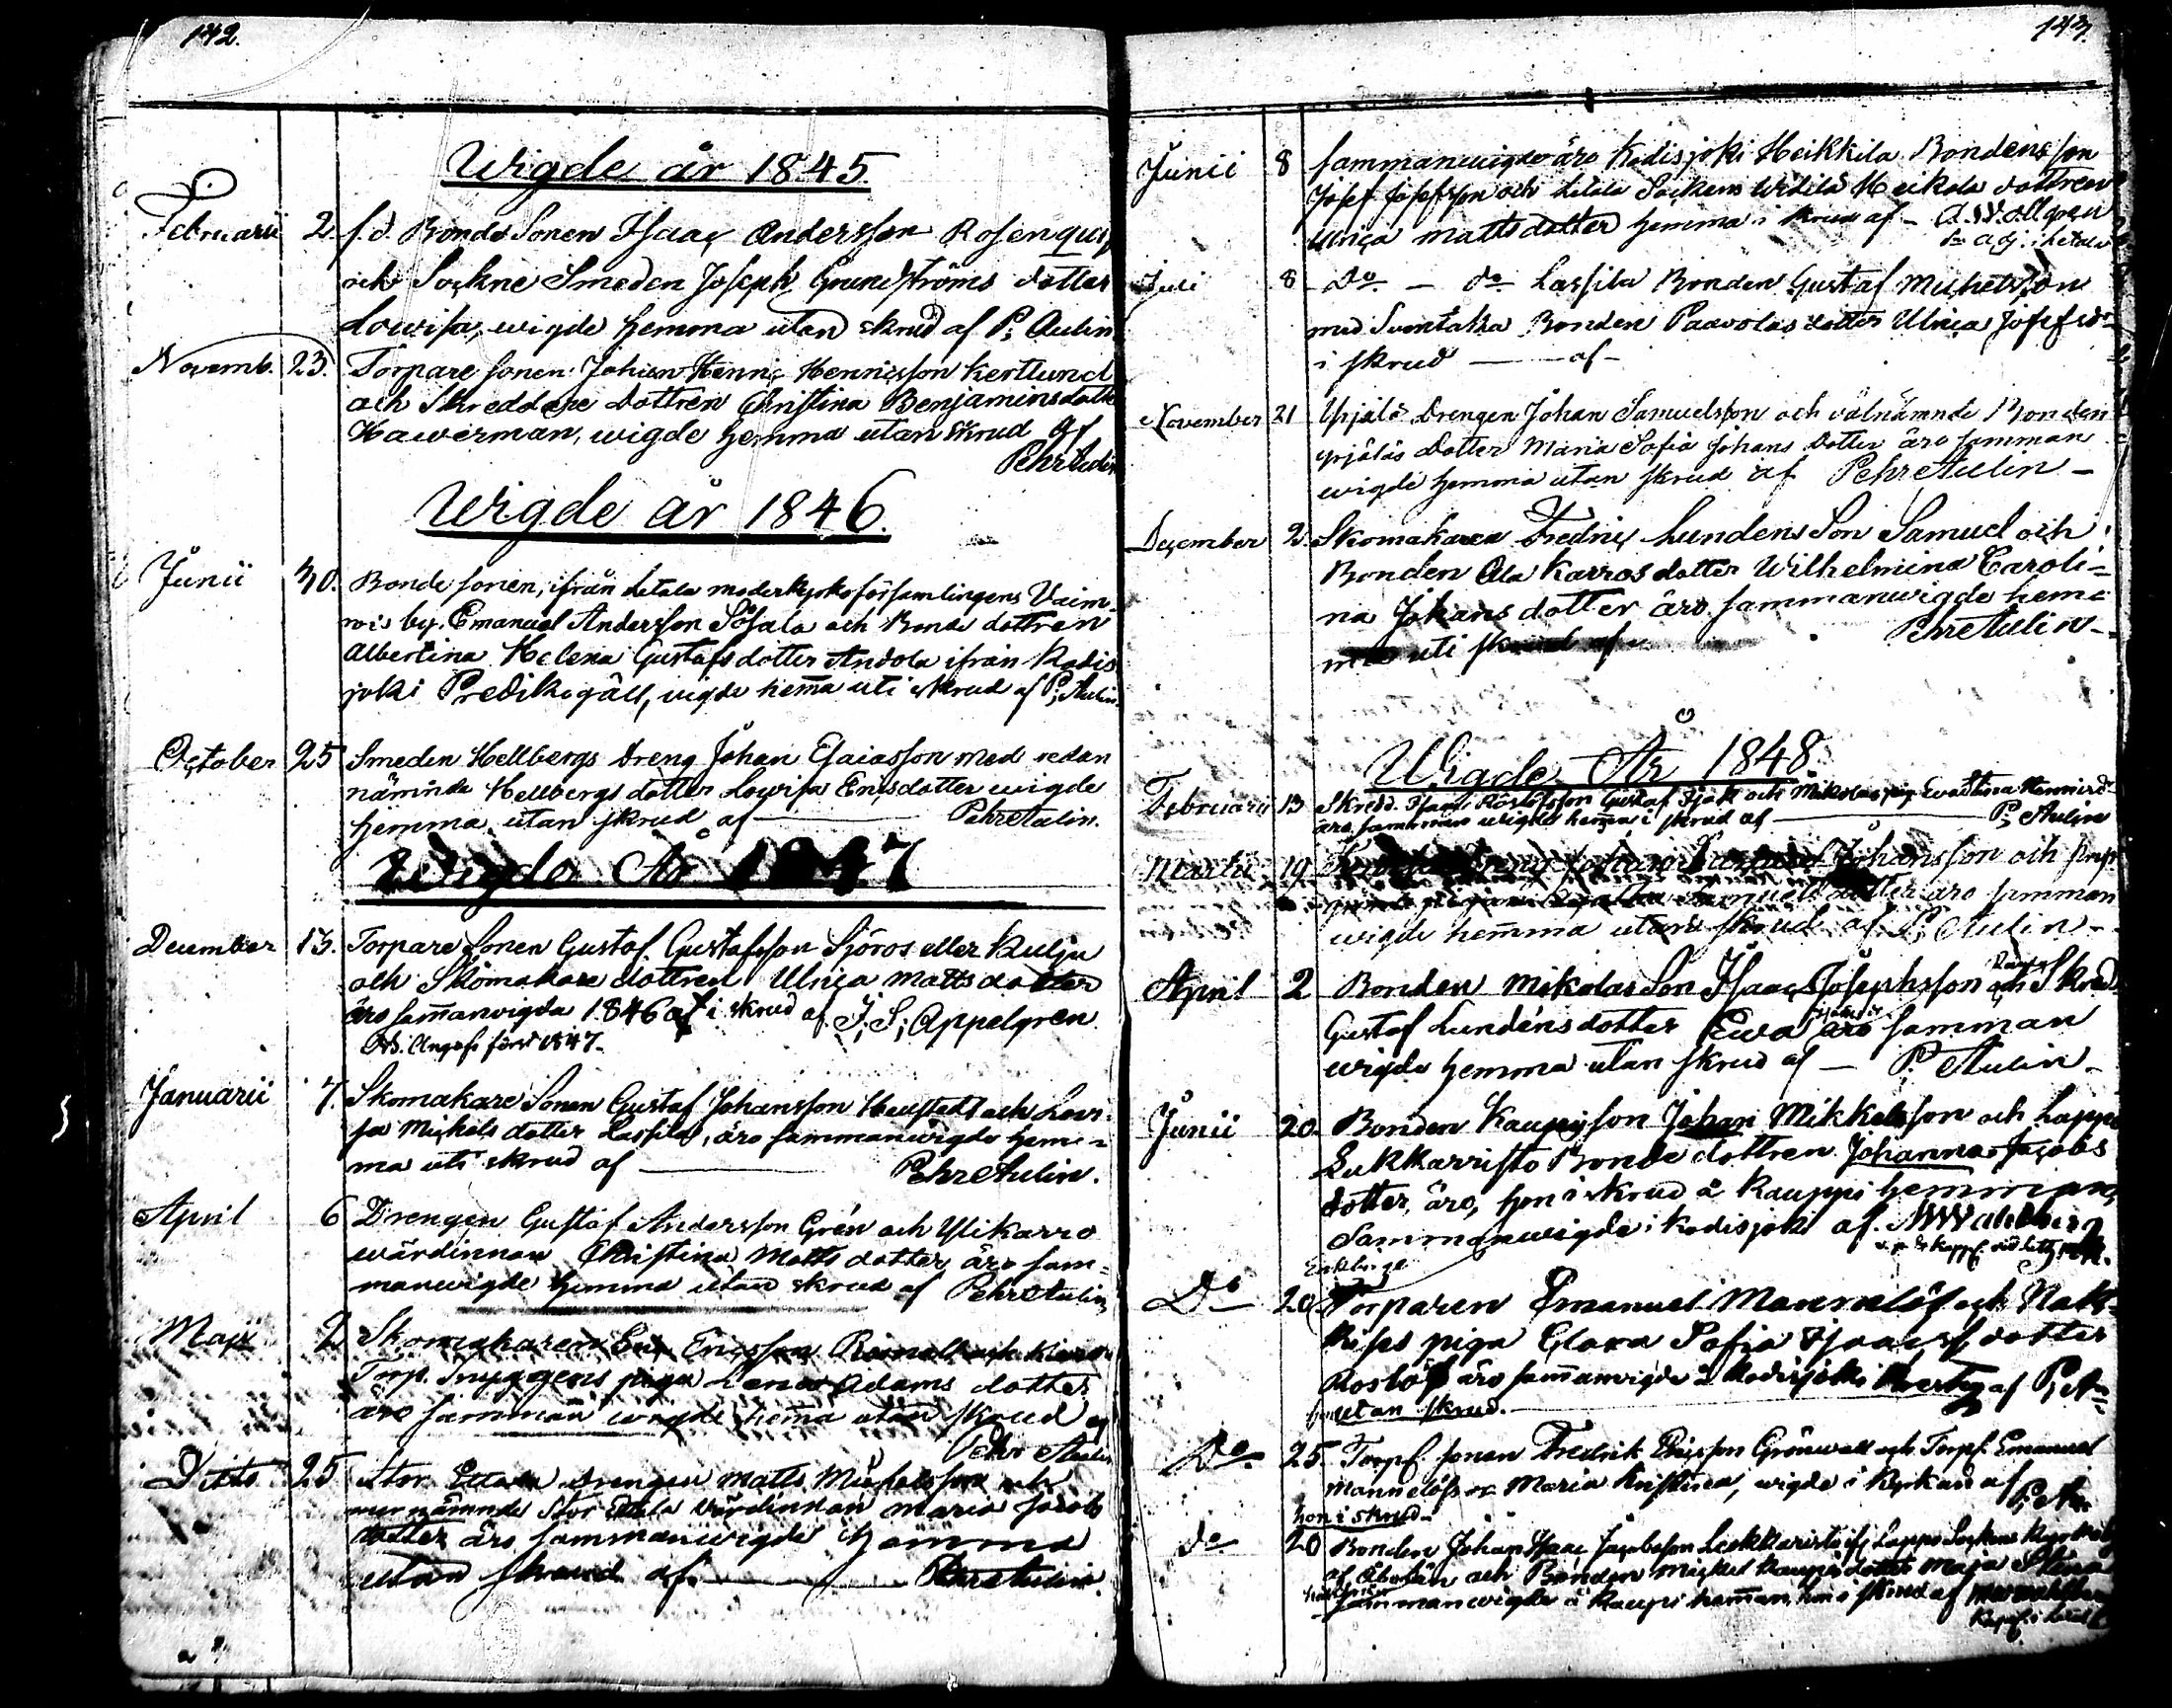 142.
Wigde år 1845.
Februarii 2. f.d. Bonde Sonen Isaac Andersson Rosenqvist
och Sockne Smeden Joseph Grundströms dotter
Lowisa, wigde hemma utan skrud af P; Aulin
Novemb. 23. Torpare sonen Johan Henric Henricsson Kertlund
och Skreddare dottren Christina Benjaminsdotter
Hawerman, wigde hemma utan skrud af
Pehr Aulin
Wigde år 1846.
Junii 30. Bonde sonen, ifrån Letala moderkyrkoförsamlingens Vaim-
by. Emanuel Andersson och Bonde dottren
Albertina Helena Gustafsdotter Andola ifrån Kodis
joki Predikogäll, wigde hemma uti skrud af P; Aulin.
October 25 Smeden Hellbergs Dreng Johan Esaiasson med redan
nämnde Hellbergs dotter Lovisa Ericsdotter wigde
hemma utan skrud af Pehr Aulin.
Wigde År 1847
December 13. Torpare Sonen Gustaf Gustafsson Sjöros eller Kulju
och Skomakare dottren Ulrica Mattsdotter
äro sammanwigda 1846 i skrud af J. S; Appelgren.
NB. Angafs först 1847.
Januarii 7. Skomakare Sonen Gustaf Johansson och Lovi-
sa Michels dotter Lassila, äro sammanwigde hem-
ma uti skrud af Pehr Aulin.
April 6 Drengen Gustaf Andersson Grén och Ylikarro
wärdinnan Christina Matts dotter äro sam-
manwigde hemma utan skrud af Pehr Aulin
Maji 2 Skomakaren Ericsson och
Torp. piga Lena Adams dotter
äro samman wigde hemma utan skrud af
Pehr Aulin
Ditto 25 Stor Drengen Matts Michelsson och
nämnde Stor wärdinnan Maria Jacobs
dotter äro sammanwigde hemma
utan skrud af Pehr Aulin.
143.
Junii 8 sammanwigde äro Kodisjoki Heikkila Bondens son
Josef Josefsson och Letala Sockens Heikola dottren
Ulrica Mattsdotter hemma i skrud af
adj. i Letala
Juli 8 Do. – do Lassila Bonden Gustaf Michelsson
med Suontaka Bonden Paavolas dotter Ulrica Josefsdr
i skrud af
November 21 Yrjälä Drengen Johan Samuelsson och välnämnde Bonden
Yrjäläs Dotter Maria Sofia Johans Dotter äro samman
wigde hemma utan skrud af Pehr Aulin –
December 2. Skomakaren Fredric Lundens Son Samuel och
Bonden Ala Karros dotter Wilhelmina Caroli-
na Johans dotter äro sammanwigde hem-
ma uti skrud af Pehr Aulin –
Wigde År 1848
Februarii 13 Skredd. Gustaf och Mikolas pig Eva Stina
äro samman wigde hemma i skrud af P; Aulin
Martii 19 Johansson och
dotter äro samman
wigde hemma utan skrud af P; Aulin –
April 2 Bonden Mikolas Son Isaac Josephsson och Skredd.
Gustaf Lundéns dotter Ewa äro samman
wigde hemma utan skrud af – P. Aulin –
Junii 20. Bonden Kauppi son Johan Mikkelsson och Lappi
Lukkaristo Bonde dottren Johanna Jacobs
dotter, äro, hon i skrud å Kauppi hemman,
Sammanwigde i Kodisjoki af
Do 20 Torparen Emanuel Mannelöf och
piga Clara Sofia Isaacs dotter
Roslöf äro sammanwigde i Kodisjoki af P; A
utan skrud.
Do 25. Torp. sonen Fredrik Ericsson Grönwall och Torp. Emanuel
Mannelöfs Maria Kristina, wigde i Kyrkan af
hon i skrud – P; A
do 20 Bonden Johan Isaac Jacobsson Lukkaristo Lappo Sockens
af Åbo län och Bonden Michel Kauppi dotter Maja Stina
sammanwigde å Kaupi hemman, hon i skrud af